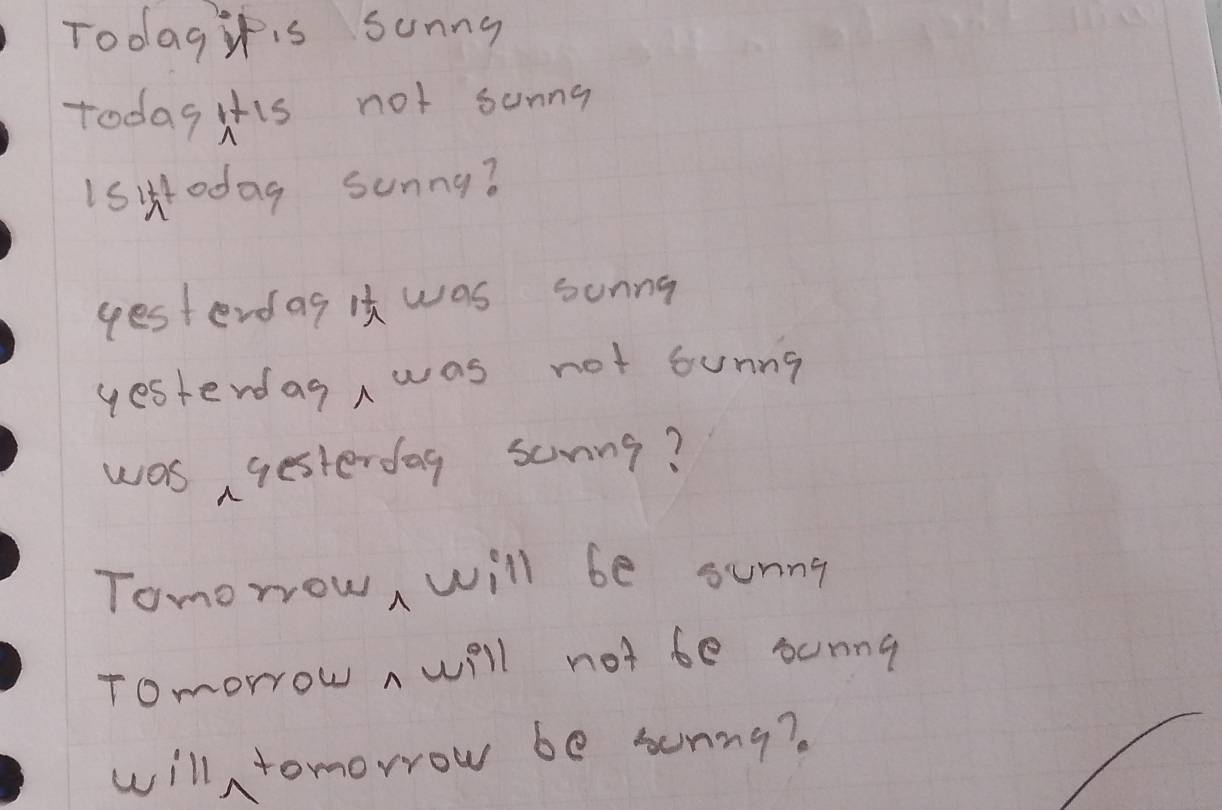 Today it is sunny
Today it is not sunny
Is it today sunny?
yesterday it was sunny
yesterday ‸ was not sunny
was ‸ yesterday sunny?
Tomorrow ‸ will be sunny
Tomorrow ‸ will not be sunny
will ‸ tomorrow be sunny?